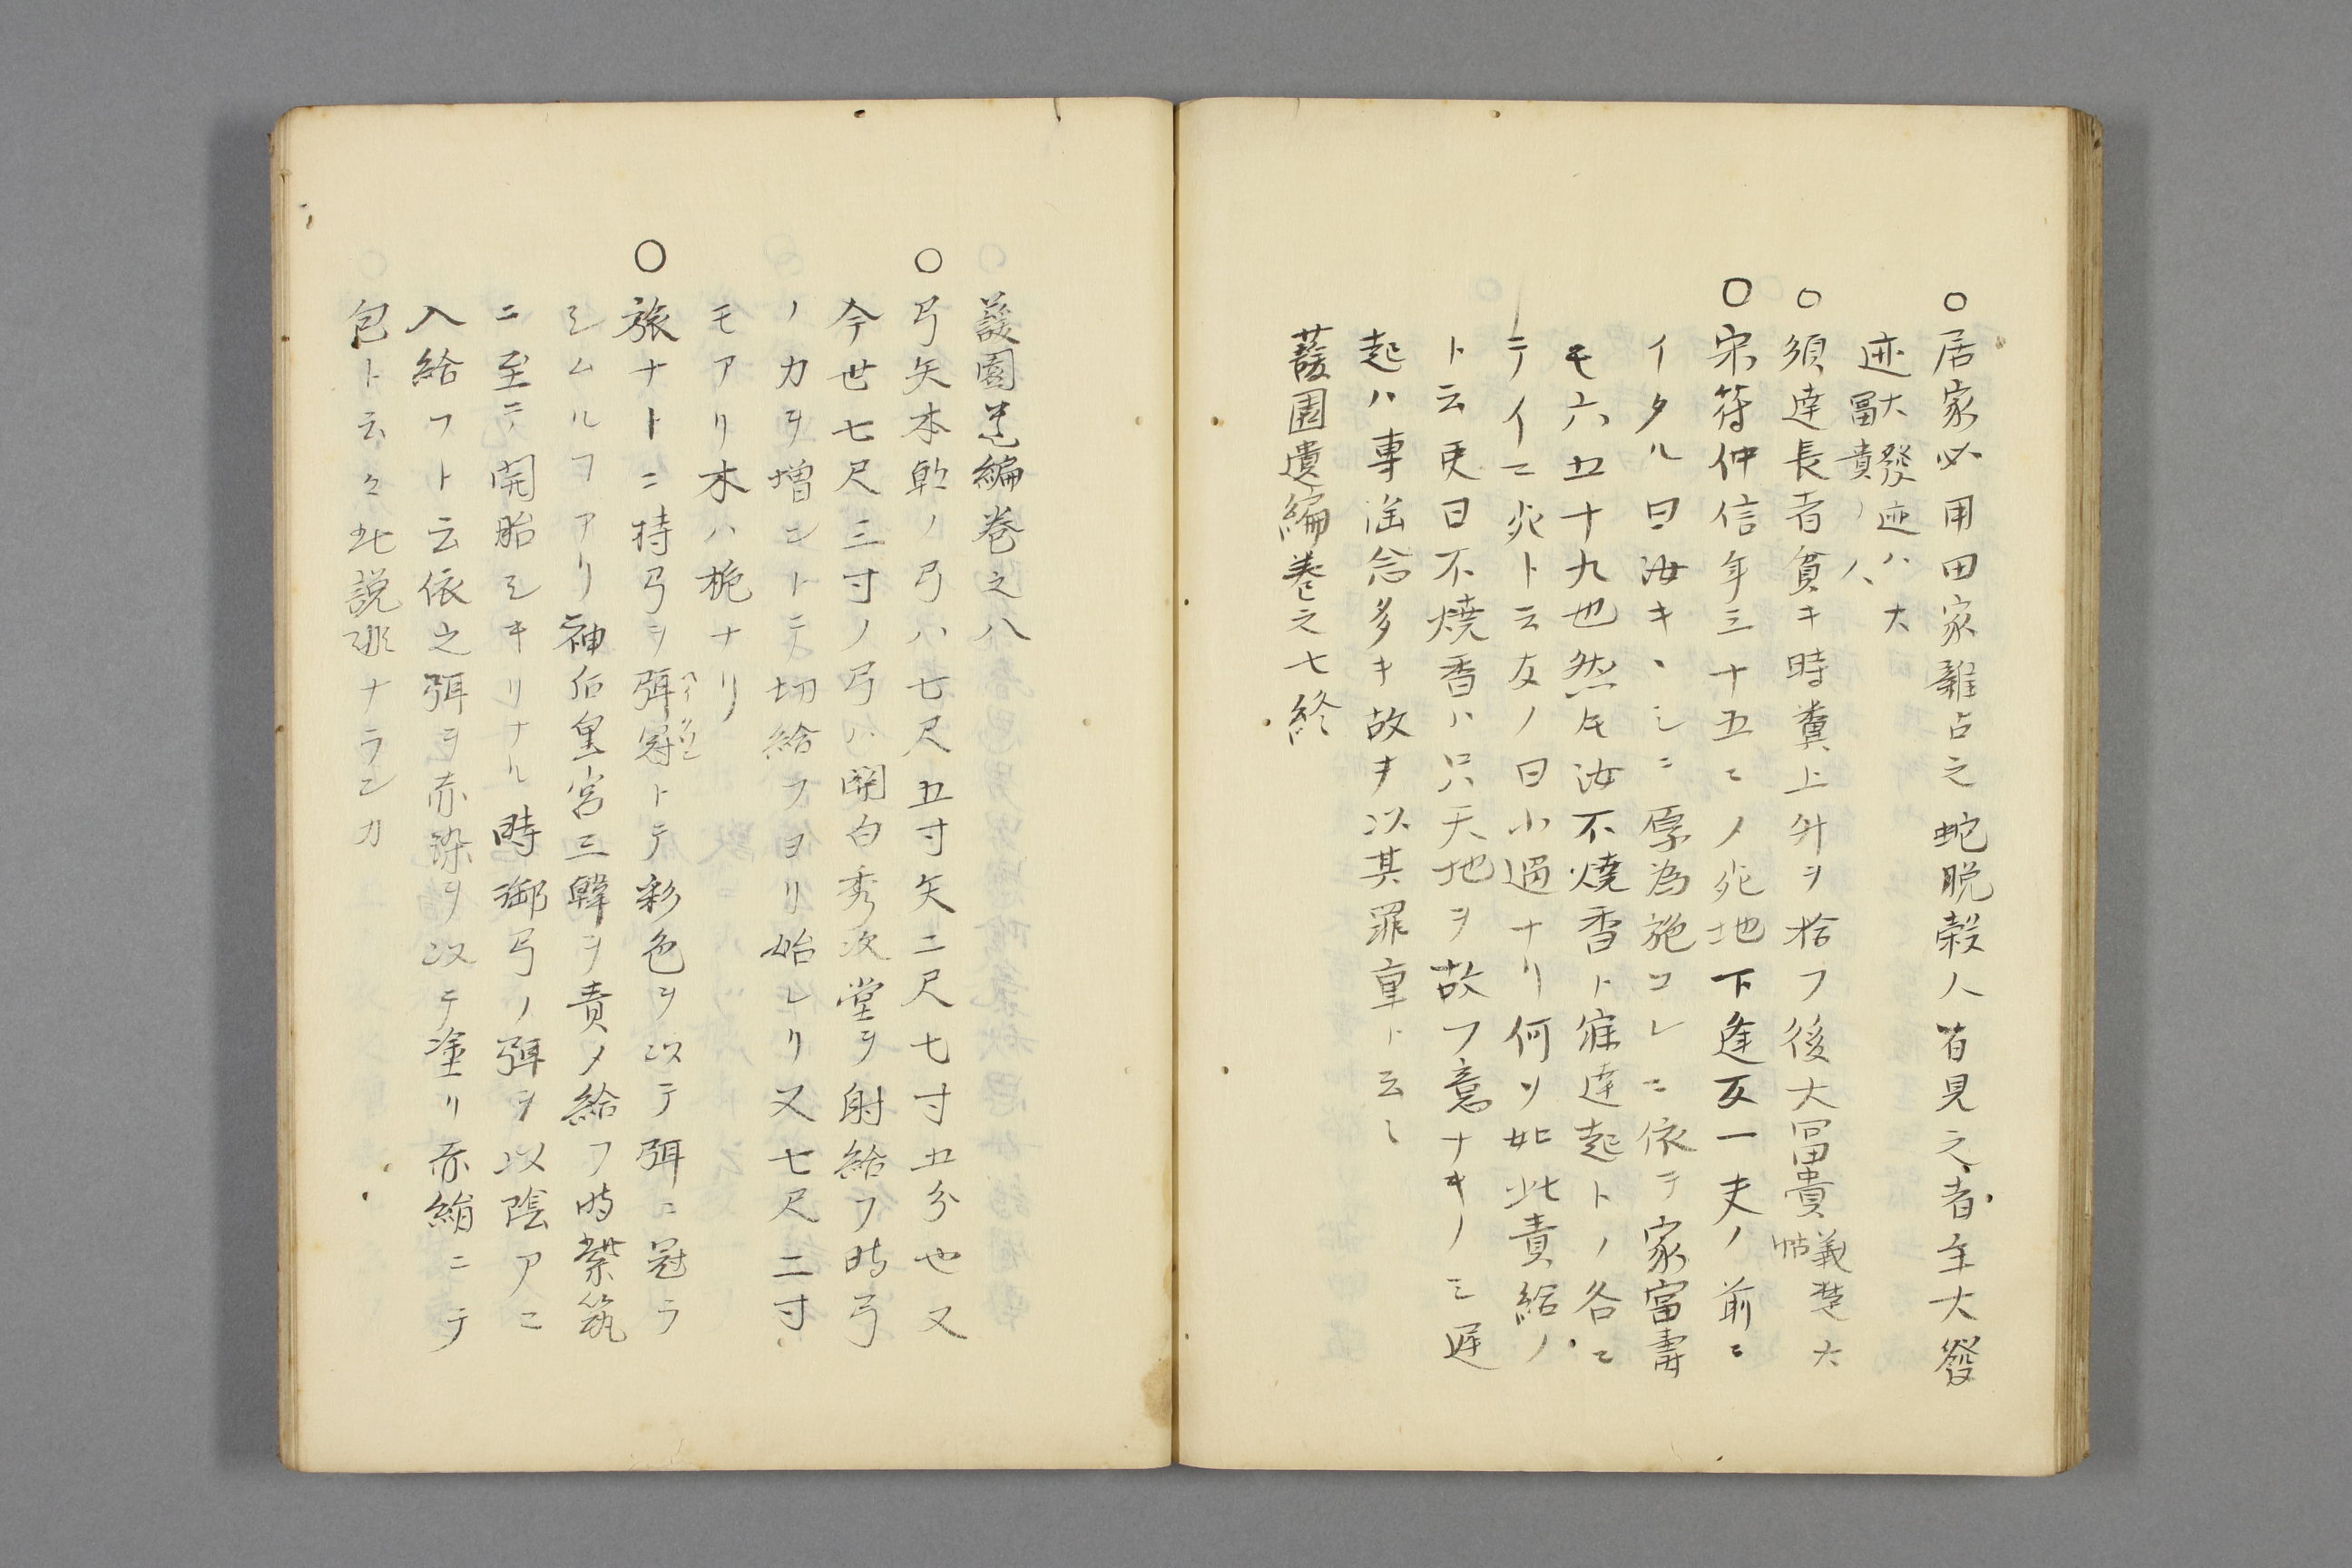 ○居家必用田家雜占之蛇脱殼人有見之者年大發
迹大發迹ハ大
富貴ノ人
○須達長者貧キ時糞上升ヲ拾フ後大冨貴義楚六
帖
○宋符仲信年三十五ニノ死地下逢亙一吏ノ前ニ
イタル曰汝キヽシニ原為施コレニ依テ家富壽
モ六五十九也然𪜈汝不燒香ト寐達起トノ各ニ
テイニ死ト云友ノ曰小過ナリ何ソ如此責給ノ
ト云吏曰不燒香ハ只天地ヲ故フ意ナキノミ遅
起ハ專淫念多キ故ヲ以其罪重ト云〻
蘐園遺編巻之七終
蘐園遺編巻之八
○弓矢本朝ノ弓ハ七尺五寸矢ニ尺七寸五分也又
今世七尺三寸ノ弓ハ關白秀次堂ヲ射給フ時弓
ノカヲ増ントテ切給フヨリ始レリ又七尺二寸
モアリ木ハ桅ナリ
○旅ナトニ持弓ヲ弭冠トテ彩色ヲ以テ弭ニ冠ラ
シムルヿアリ神后皇宮三韓ヲ責メ給フ時紫筑
ニ至テ開胎シキリナル時御弓ノ弭ヲ以陰アニ
入給フト云依之弭ヲ赤染ヲ以テ塗リ赤絹ニテ
包ト云々此説    ナランカ